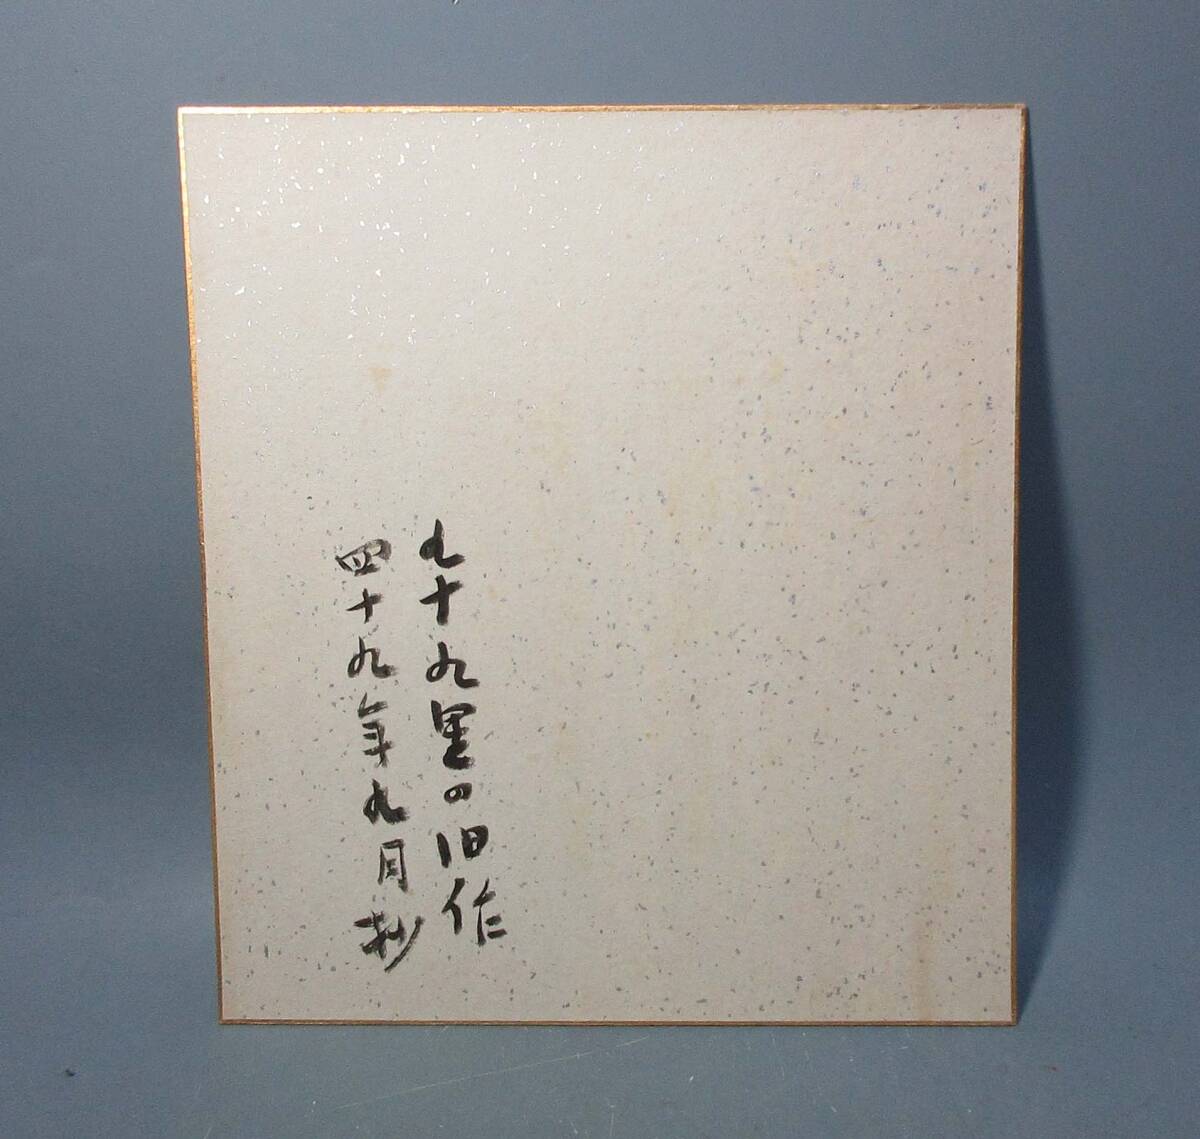 九十九里の旧作
四十九年九月抄